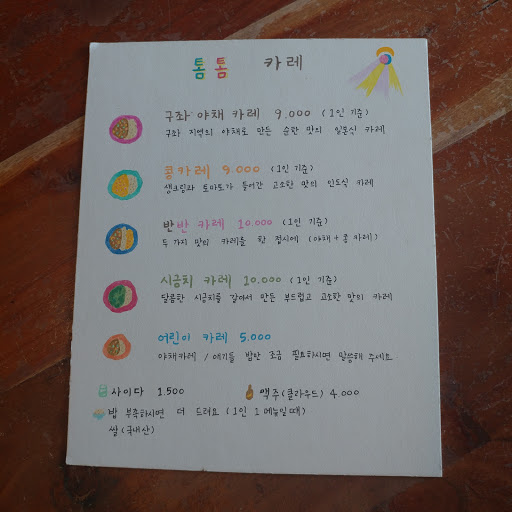 톰톰 카레
구좌 야채 카레 9.000 (1인 기준)
구좌 지역의 야채로 만든 순한 맛의 일본식 카레
콩카레 9.000 (1인 기준)
생크림과 토마토가 들어간 고소한 맛의 인도식 카레
반반 카레 10.000 (1인 기준)
두가지 맛의 카레를 한 접시에 (야채+콩카레)
시금치 카레 10.000 (1인 기준)
달콤한 시금치를 갈아서 만든 부드럽고 고소한 맛의 카레
어린이 카레 5.000
야채카레 / 애기들 밥만 조금 필요하시면 말씀해 주세요
사이다 1.500 맥주(클라우드) 4.000
밥 부족하시면 더 드려요 (1인 1메뉴일때)
쌀(국내산)